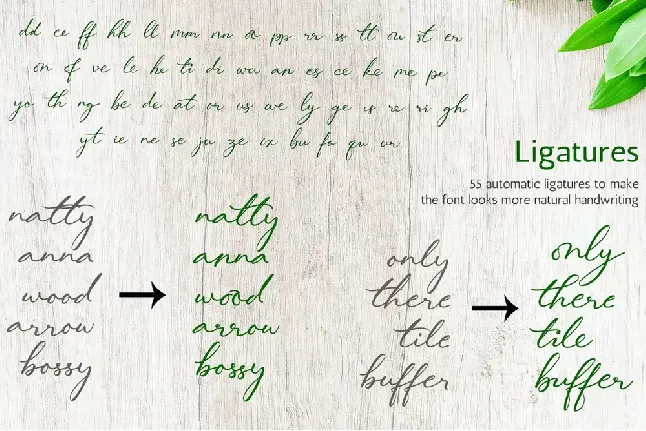 dd ee ff hh ll mm nn oo pp rr ss tt ou st er
on of ve le hi ti di wa an es ce ke me pe
yo th ng be de at or us we ly ge is re ri gh
yt ie ne se ju ze ix bu fo qu ur
Ligatures
55 automatic ligatures to make
the font looks more natural handwriting
natty
anna
wood
arrow
bossy
natty
anna
wood
arrow
bossy
only
there
tile
buffer
only
there
tile
buffer